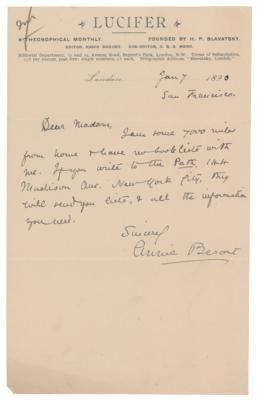 LUCIFER
A THEOSOPHICAL MONTHLY. FOUNDED BY H. P. BLAVATSKY.
EDITOR, ANNIE BESANT. SUB-EDITOR, G. R. S. MEAD.
Editorial Department, 17 and 19, Avenue Road, Regent's Park, London, N.W. Terms of Subscription,
17/6 per annum, post free: single numbers, 1/6 each. Telegraphic Address, "Blavatsky, London."
London Jan 7 1893
San Francisco.
Dear Madam, I am some 7000 miles
from home & have no book lists with
me. If you write to the Path 144
Madison Ave. New York City, they
will send you lists, & all the information
you need.
Sincerely
Annie Besant